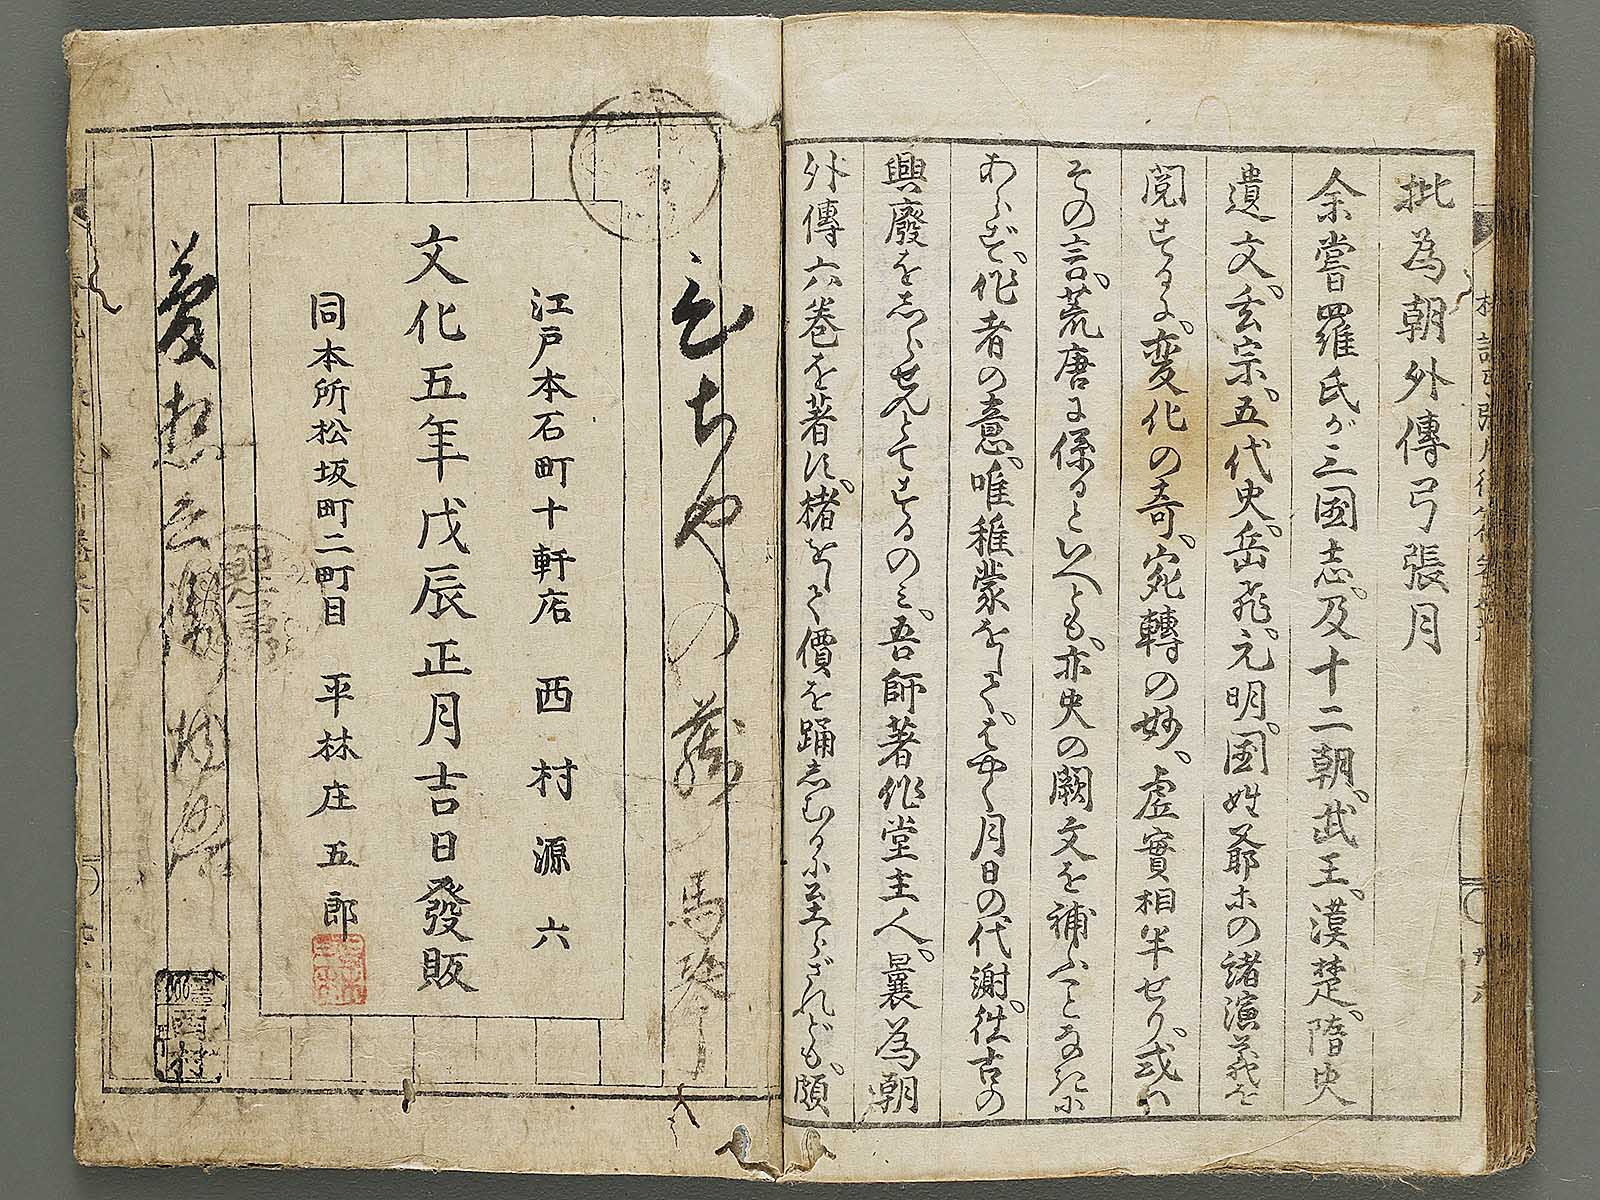 批為朝外傳弓張月
余嘗羅氏が三國志、及十二朝、武王、漢楚、隋史
遺文、玄宗、五代史、岳飛、元明、国姓爺等の諸演義を
閲するに、変化の奇、宛轉の妙、虚實相半せり、或ハ
その言、荒唐に係るといへども、亦史の闕文を補ふことなきに
あらず、作者の意、唯稚蒙をして、はやく月日の代謝、往古の
興廢をしらせんとてするのミ、吾師著作堂主人、曩為朝
外傳六巻を著す、楮をして價を踊しむるに至らざれども、頗
江戸本石町十軒店 西村源六
文化五年戊辰正月吉日發販
同本所松坂町二町目 平林庄五郎
馬琴
西村